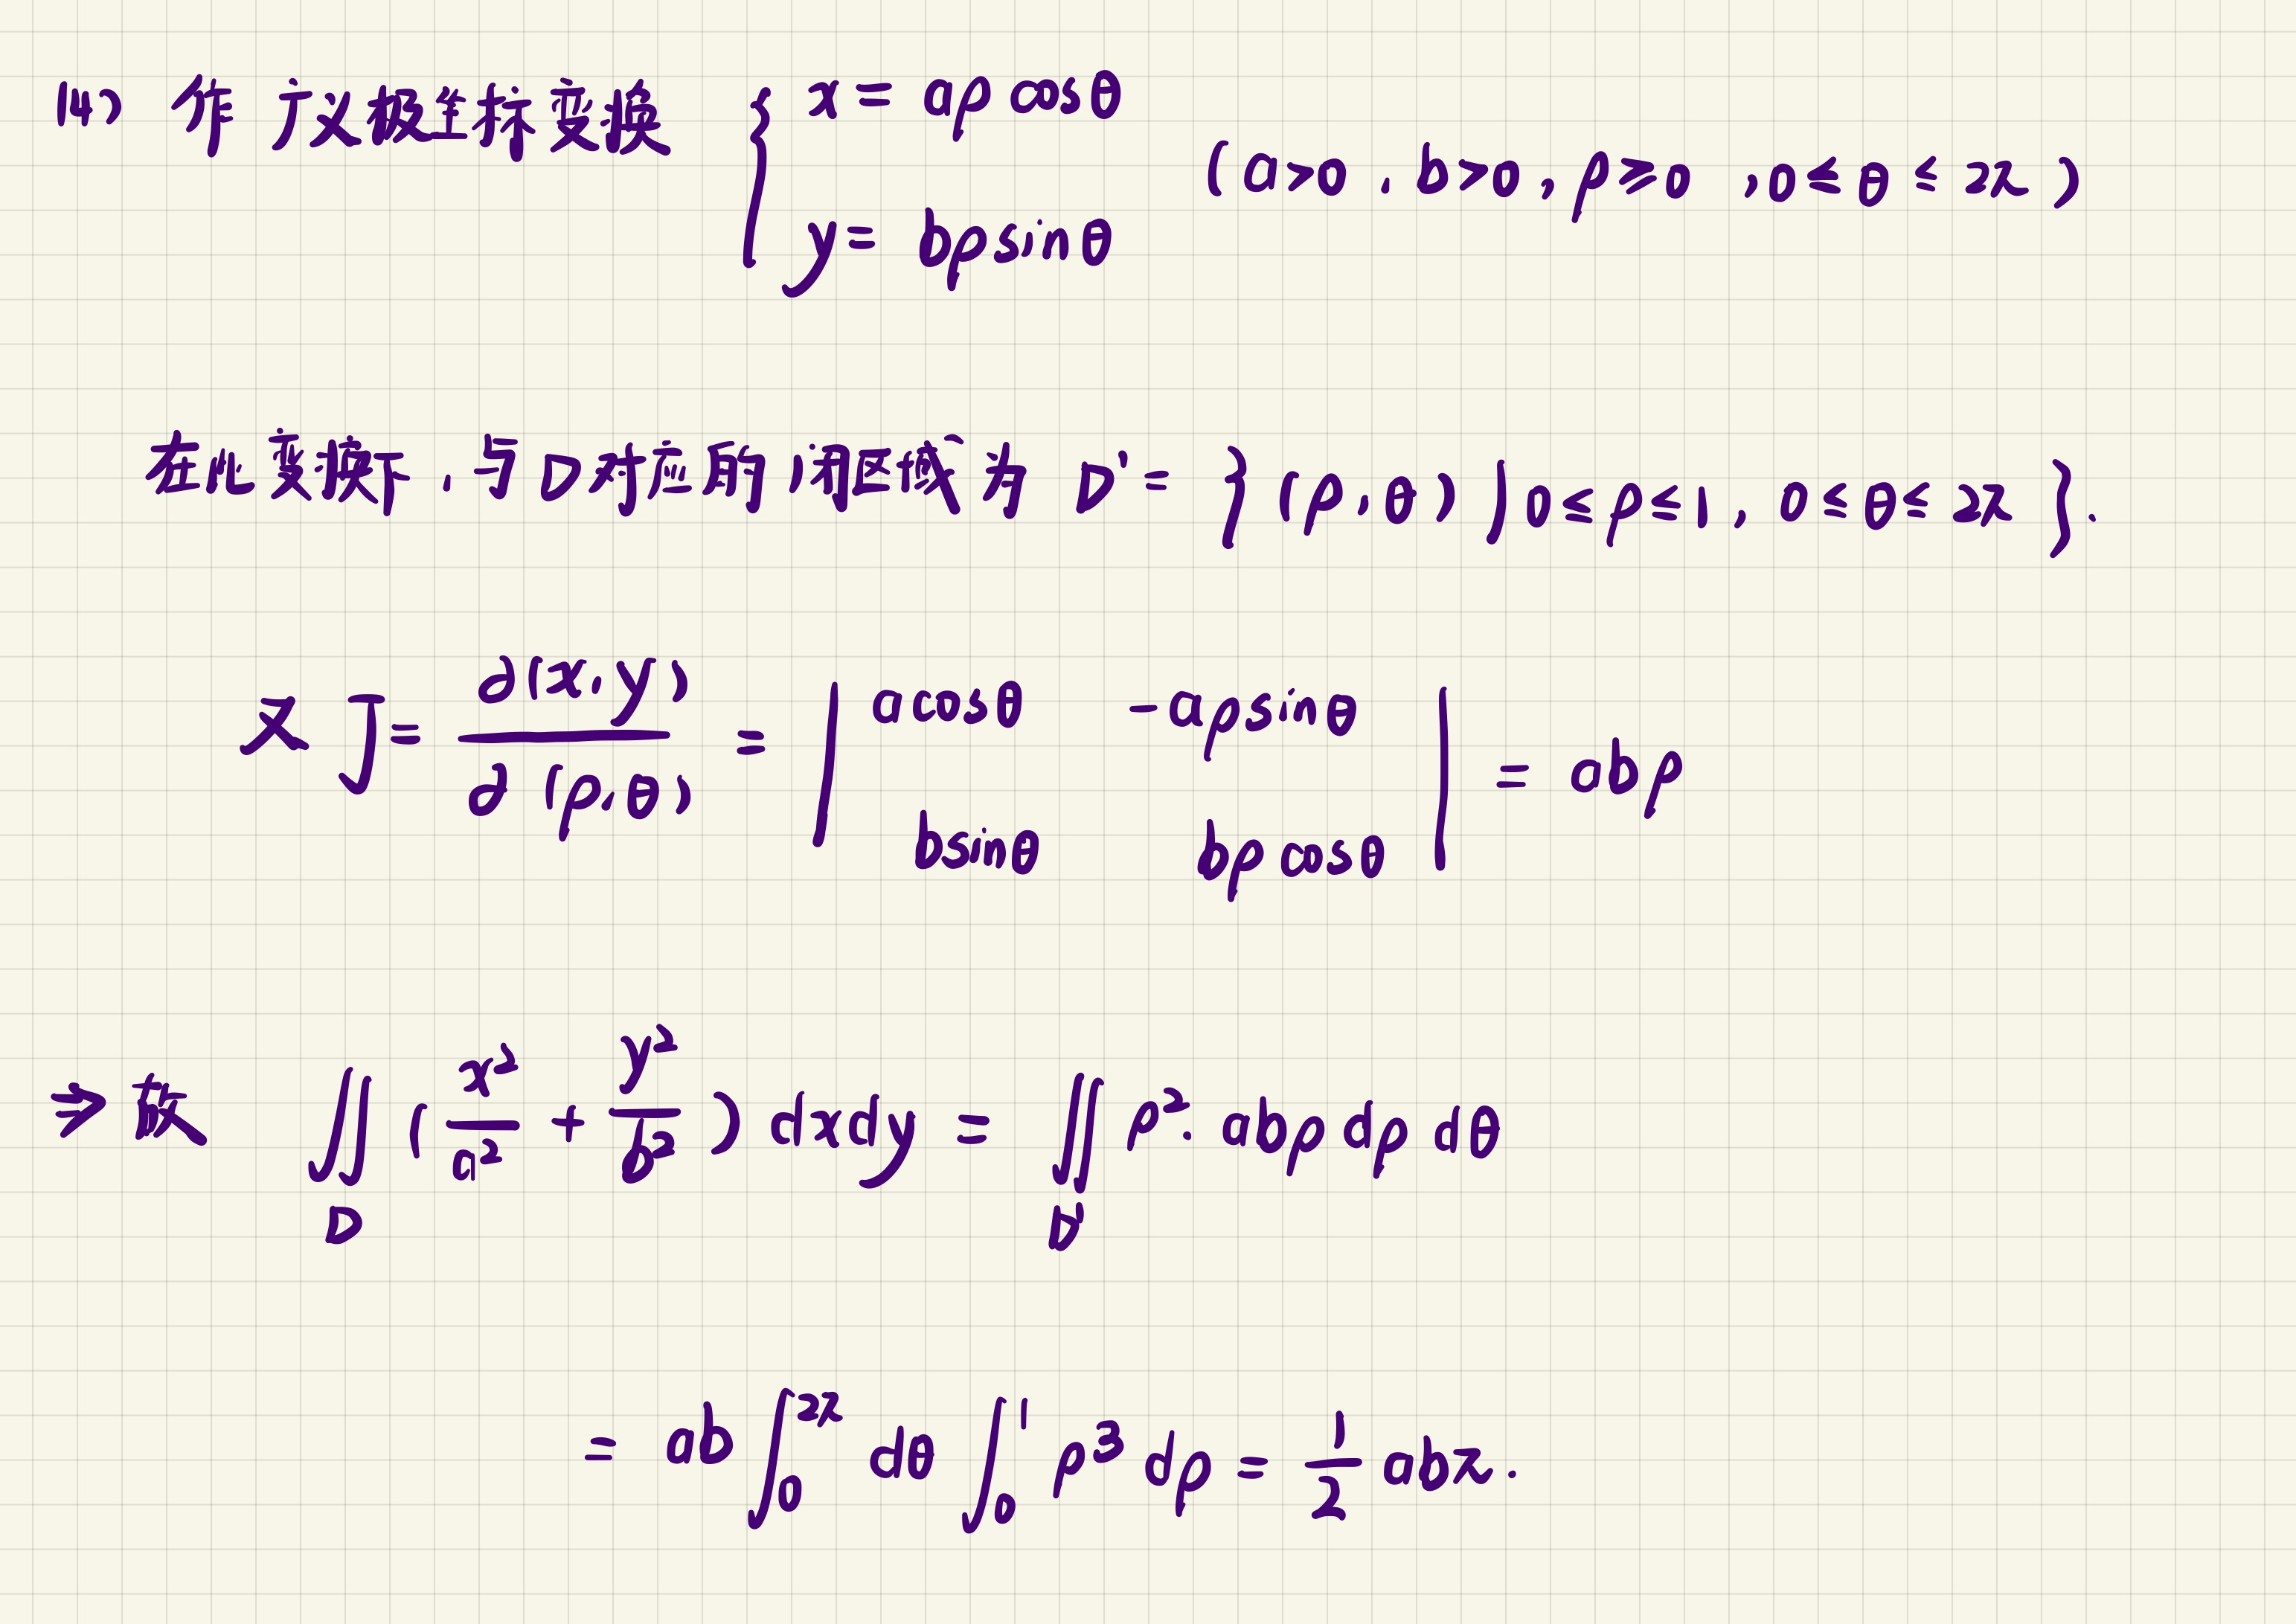 (4) 作广义极坐标变换 { x = aρcosθ
y = bρsinθ (a>0, b>0, ρ≥0, 0≤θ≤2π)
在此变换下,与D对应的闭区域为 D' = {(ρ,θ) | 0≤ρ≤1, 0≤θ≤2π}.
又 J = ∂(x,y)/∂(ρ,θ) = | acosθ -aρsinθ
bsinθ bρcosθ | = abρ
⇒ 故 ∬_D (x²/a² + y²/b²) dxdy = ∬_D' ρ²·abρ dρ dθ
= ab ∫₀^{2π} dθ ∫₀^1 ρ³ dρ = 1/2 abπ.